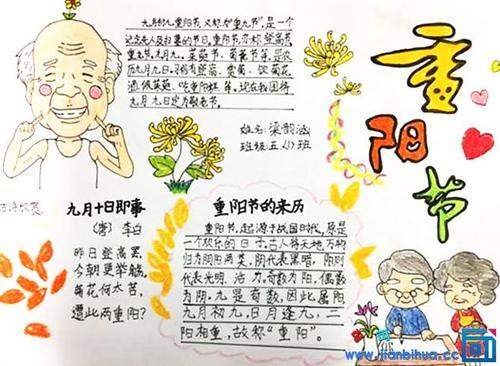 九月初九重阳节,又称为"重九节",是一个
记念老人及扫墓的节日,重阳节,亦称登高节
重九节、九月九、茱萸节、菊花节等,是农
历九月九日,习俗有登高、赏菊、饮菊花
酒、佩茱萸、吃重阳糕等。现在我国将
九月九日定为敬老节。
姓名:梁韵涵
班级:五(1)班
重阳节
古诗欣赏
九月十日即事
(唐)李白
昨日登高罢,
今朝更举觞。
菊花何太苦,
遭此两重阳?
重阳节的来历
重阳节,起源于战国时代,原是
一个欢乐的日子。古人将天地万物
归为阴阳两类,阴代表黑暗,阳则
代表光明、活力。奇数为阳,偶数
为阴。九是奇数,因此属阳
九月初九,日月逢九,二
阳相重,故称"重阳"。
www.jianbihua.cc